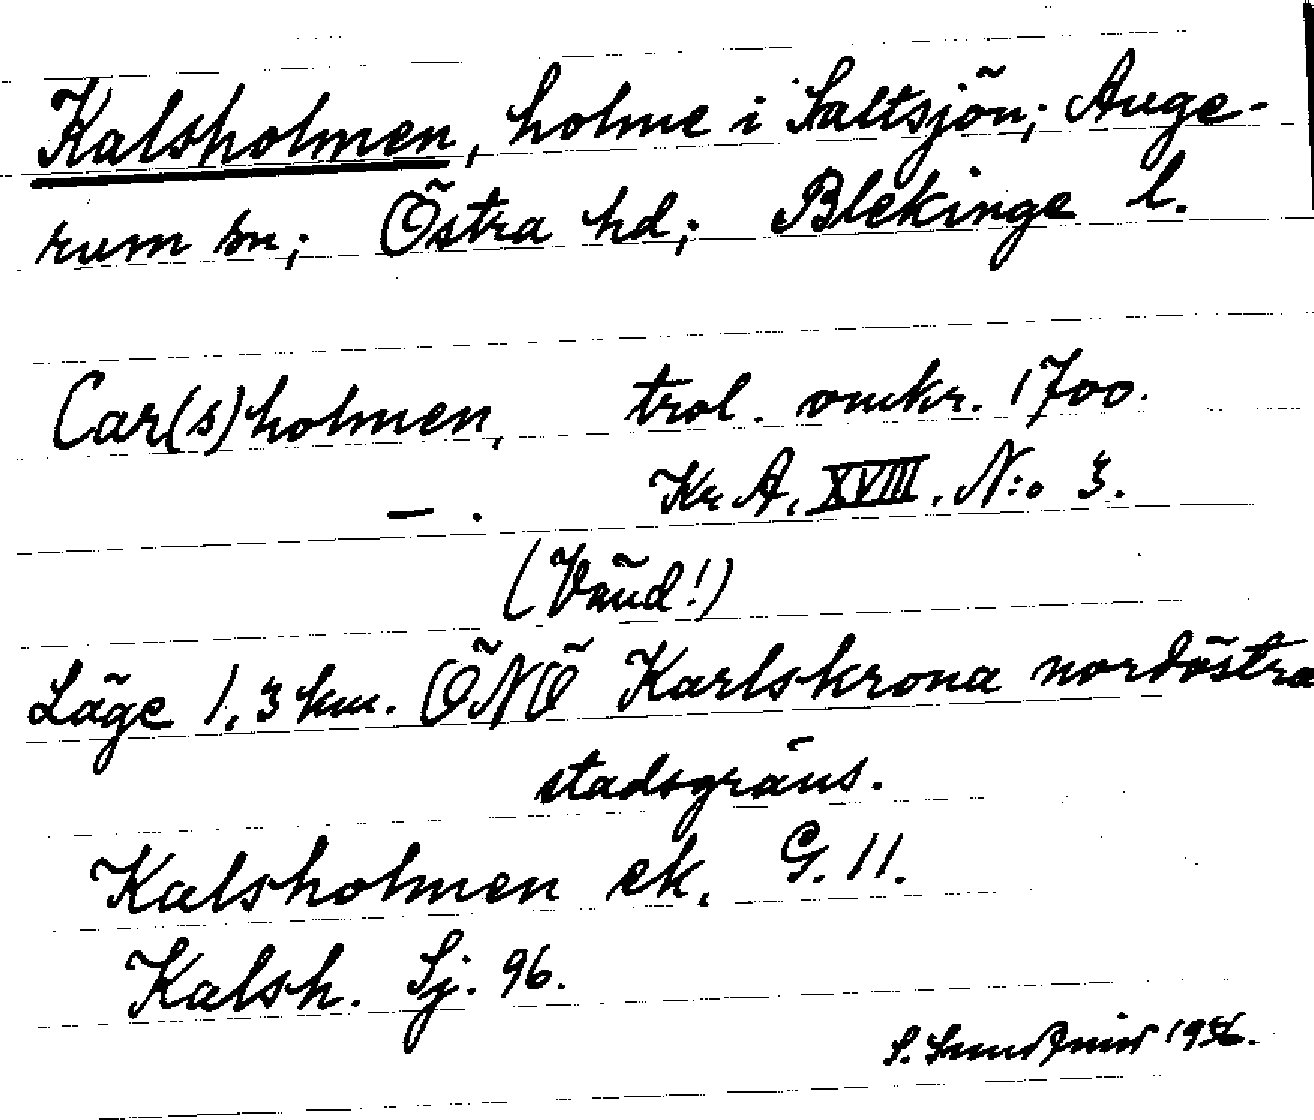 Kalsholmen, holme i Saltsjön; Auge-
rum sn; Östra hd; Blekinge l.
Car(s)holmen, trol. omkr. 1700.
— . Kr A, XVIII, N:o 3.
(Vänd!)
Läge 1,3 km. ÖNÖ Karlskrona nordöstra
stadsgräns.
Kalsholmen ek. G. 11.
Kalsh. Sj. 96.
S.